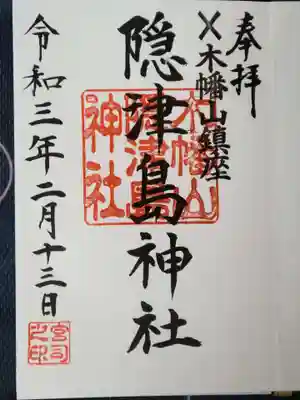 奉拝
X木幡山鎮座
隠津島神社
令和三年二月十三日
木幡山
隠津島
神社
宮司
之印